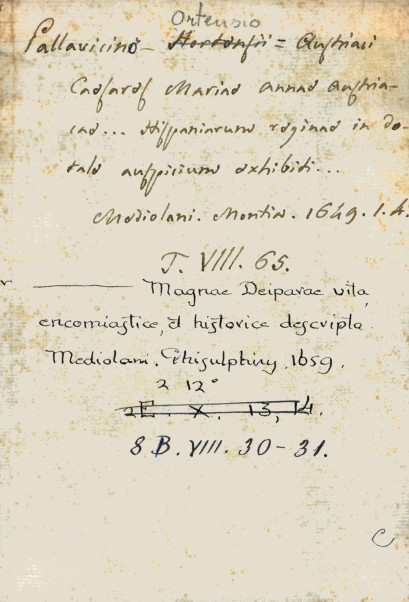 Ortensio
Pallavicino - Hortensii = Austriaci
Caesares Mariae Annae Austria-
cae... Hispaniarum reginae in do-
tale auspicium exhibiti...
Mediolani. Montia. 1649. I. 4.
T. VIII. 65.
Magnae Deiparae vita,
encomiastice, et historice descripta.
Mediolani. 1659.
2 12°
2E. X. 13, 14.
8 B. VIII. 30-31.
C